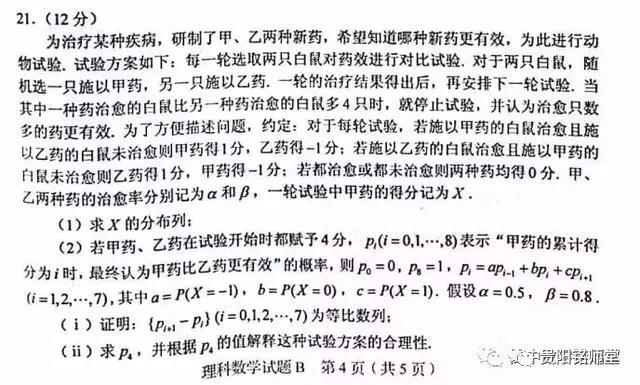 21.(12分)
为治疗某种疾病，研制了甲、乙两种新药，希望知道哪种新药更有效，为此进行动
物试验. 试验方案如下：每一轮选取两只白鼠对药效进行对比试验. 对于两只白鼠，随
机选一只施以甲药，另一只施以乙药. 一轮的治疗结果得出后，再安排下一轮试验. 当
其中一种药治愈的白鼠比另一种药治愈的白鼠多4只时，就停止试验，并认为治愈只数
多的药更有效. 为了方便描述问题，约定：对于每轮试验，若施以甲药的白鼠治愈且施
以乙药的白鼠未治愈则甲药得1分，乙药得-1分；若施以乙药的白鼠治愈且施以甲药的
白鼠未治愈则乙药得1分，甲药得-1分；若都治愈或都未治愈则两种药均得0分. 甲、
乙两种药的治愈率分别记为α和β，一轮试验中甲药的得分记为X.
(1) 求X的分布列；
(2) 若甲药、乙药在试验开始时都赋予4分，p_i(i=0,1,⋯,8)表示“甲药的累计得
分为i时，最终认为甲药比乙药更有效”的概率，则p_0=0，p_8=1，p_i=ap_{i-1}+bp_i+cp_{i+1}
(i=1,2,⋯,7)，其中a=P(X=-1)，b=P(X=0)，c=P(X=1). 假设α=0.5，β=0.8.
(i) 证明：{p_{i+1}-p_i}(i=0,1,2,⋯,7)为等比数列；
(ii) 求p_4，并根据p_4的值解释这种试验方案的合理性.
理科数学试题B 第4页（共5页）
中贵阳铭师堂